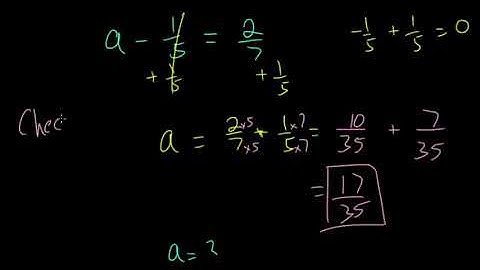 a - 1/5 = 2/7
+ 1/5 + 1/5
-1/5 + 1/5 = 0
Chec
a = 2×5/7×5 + 1×7/5×7 = 10/35 + 7/35
= 17/35
a = ?